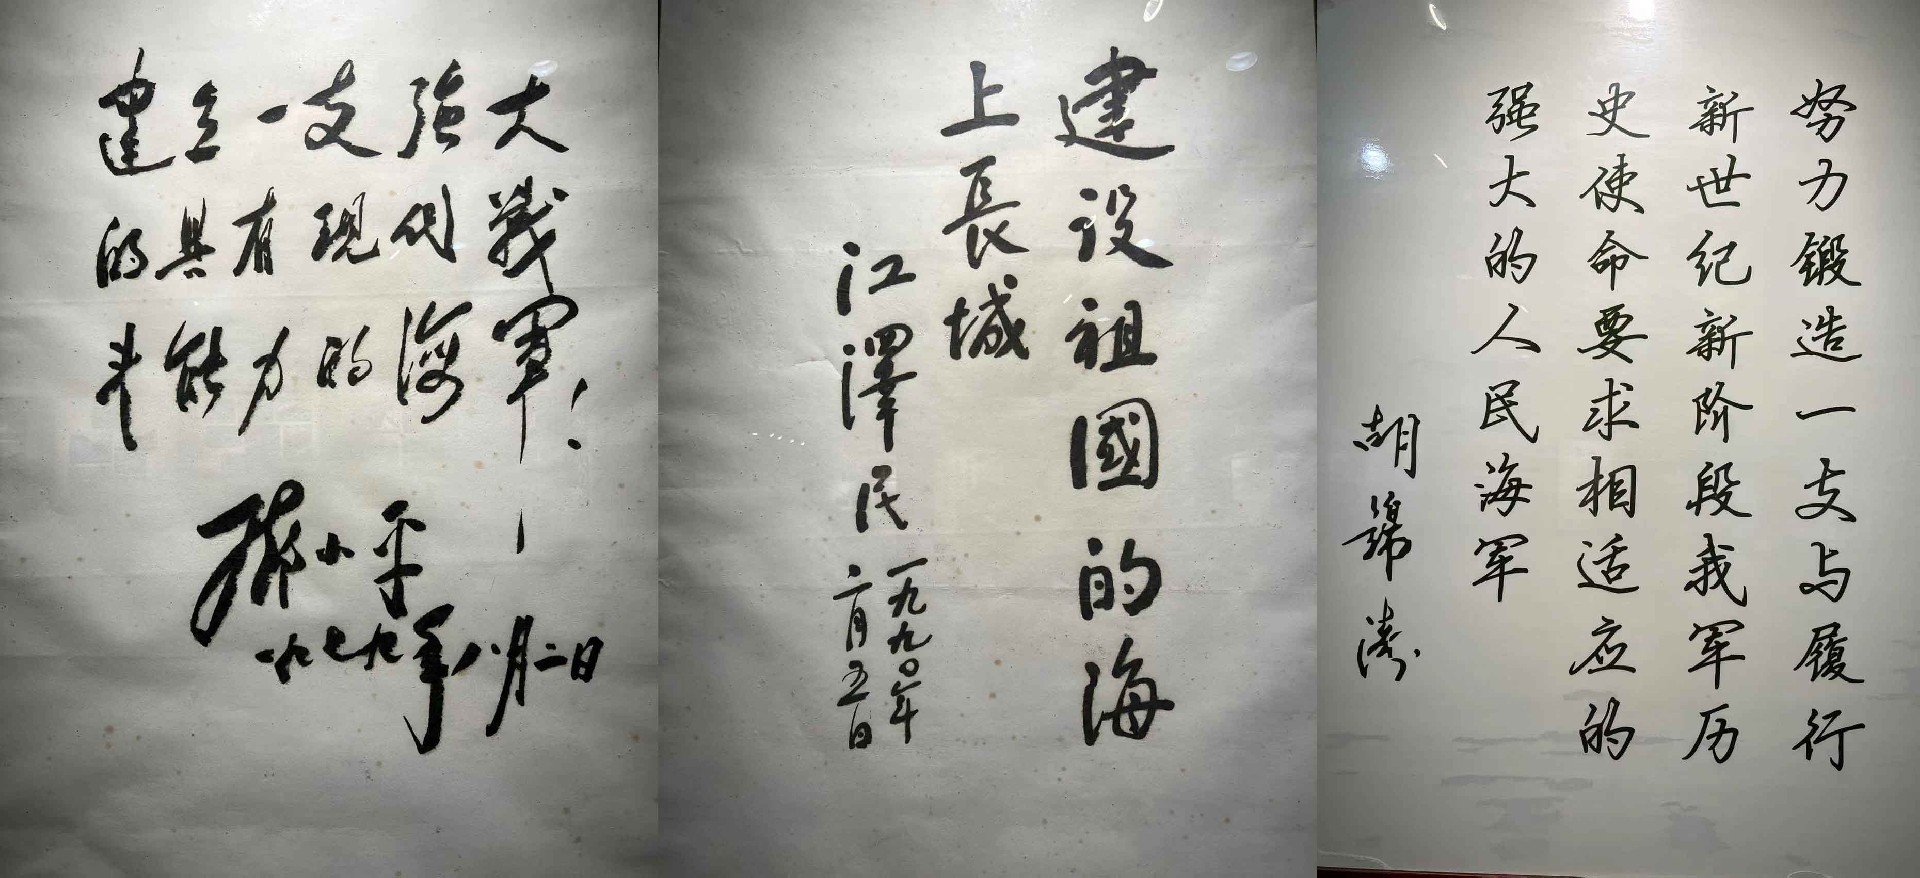 建立一支强大
的具有现代战
斗能力的海军!
邓小平
一九七九年八月二日
建设祖國的海
上長城
江澤民
一九九〇年
二月五日
努力锻造一支与履行
新世纪新阶段我军历
史使命要求相适应的
强大的人民海军
胡锦涛